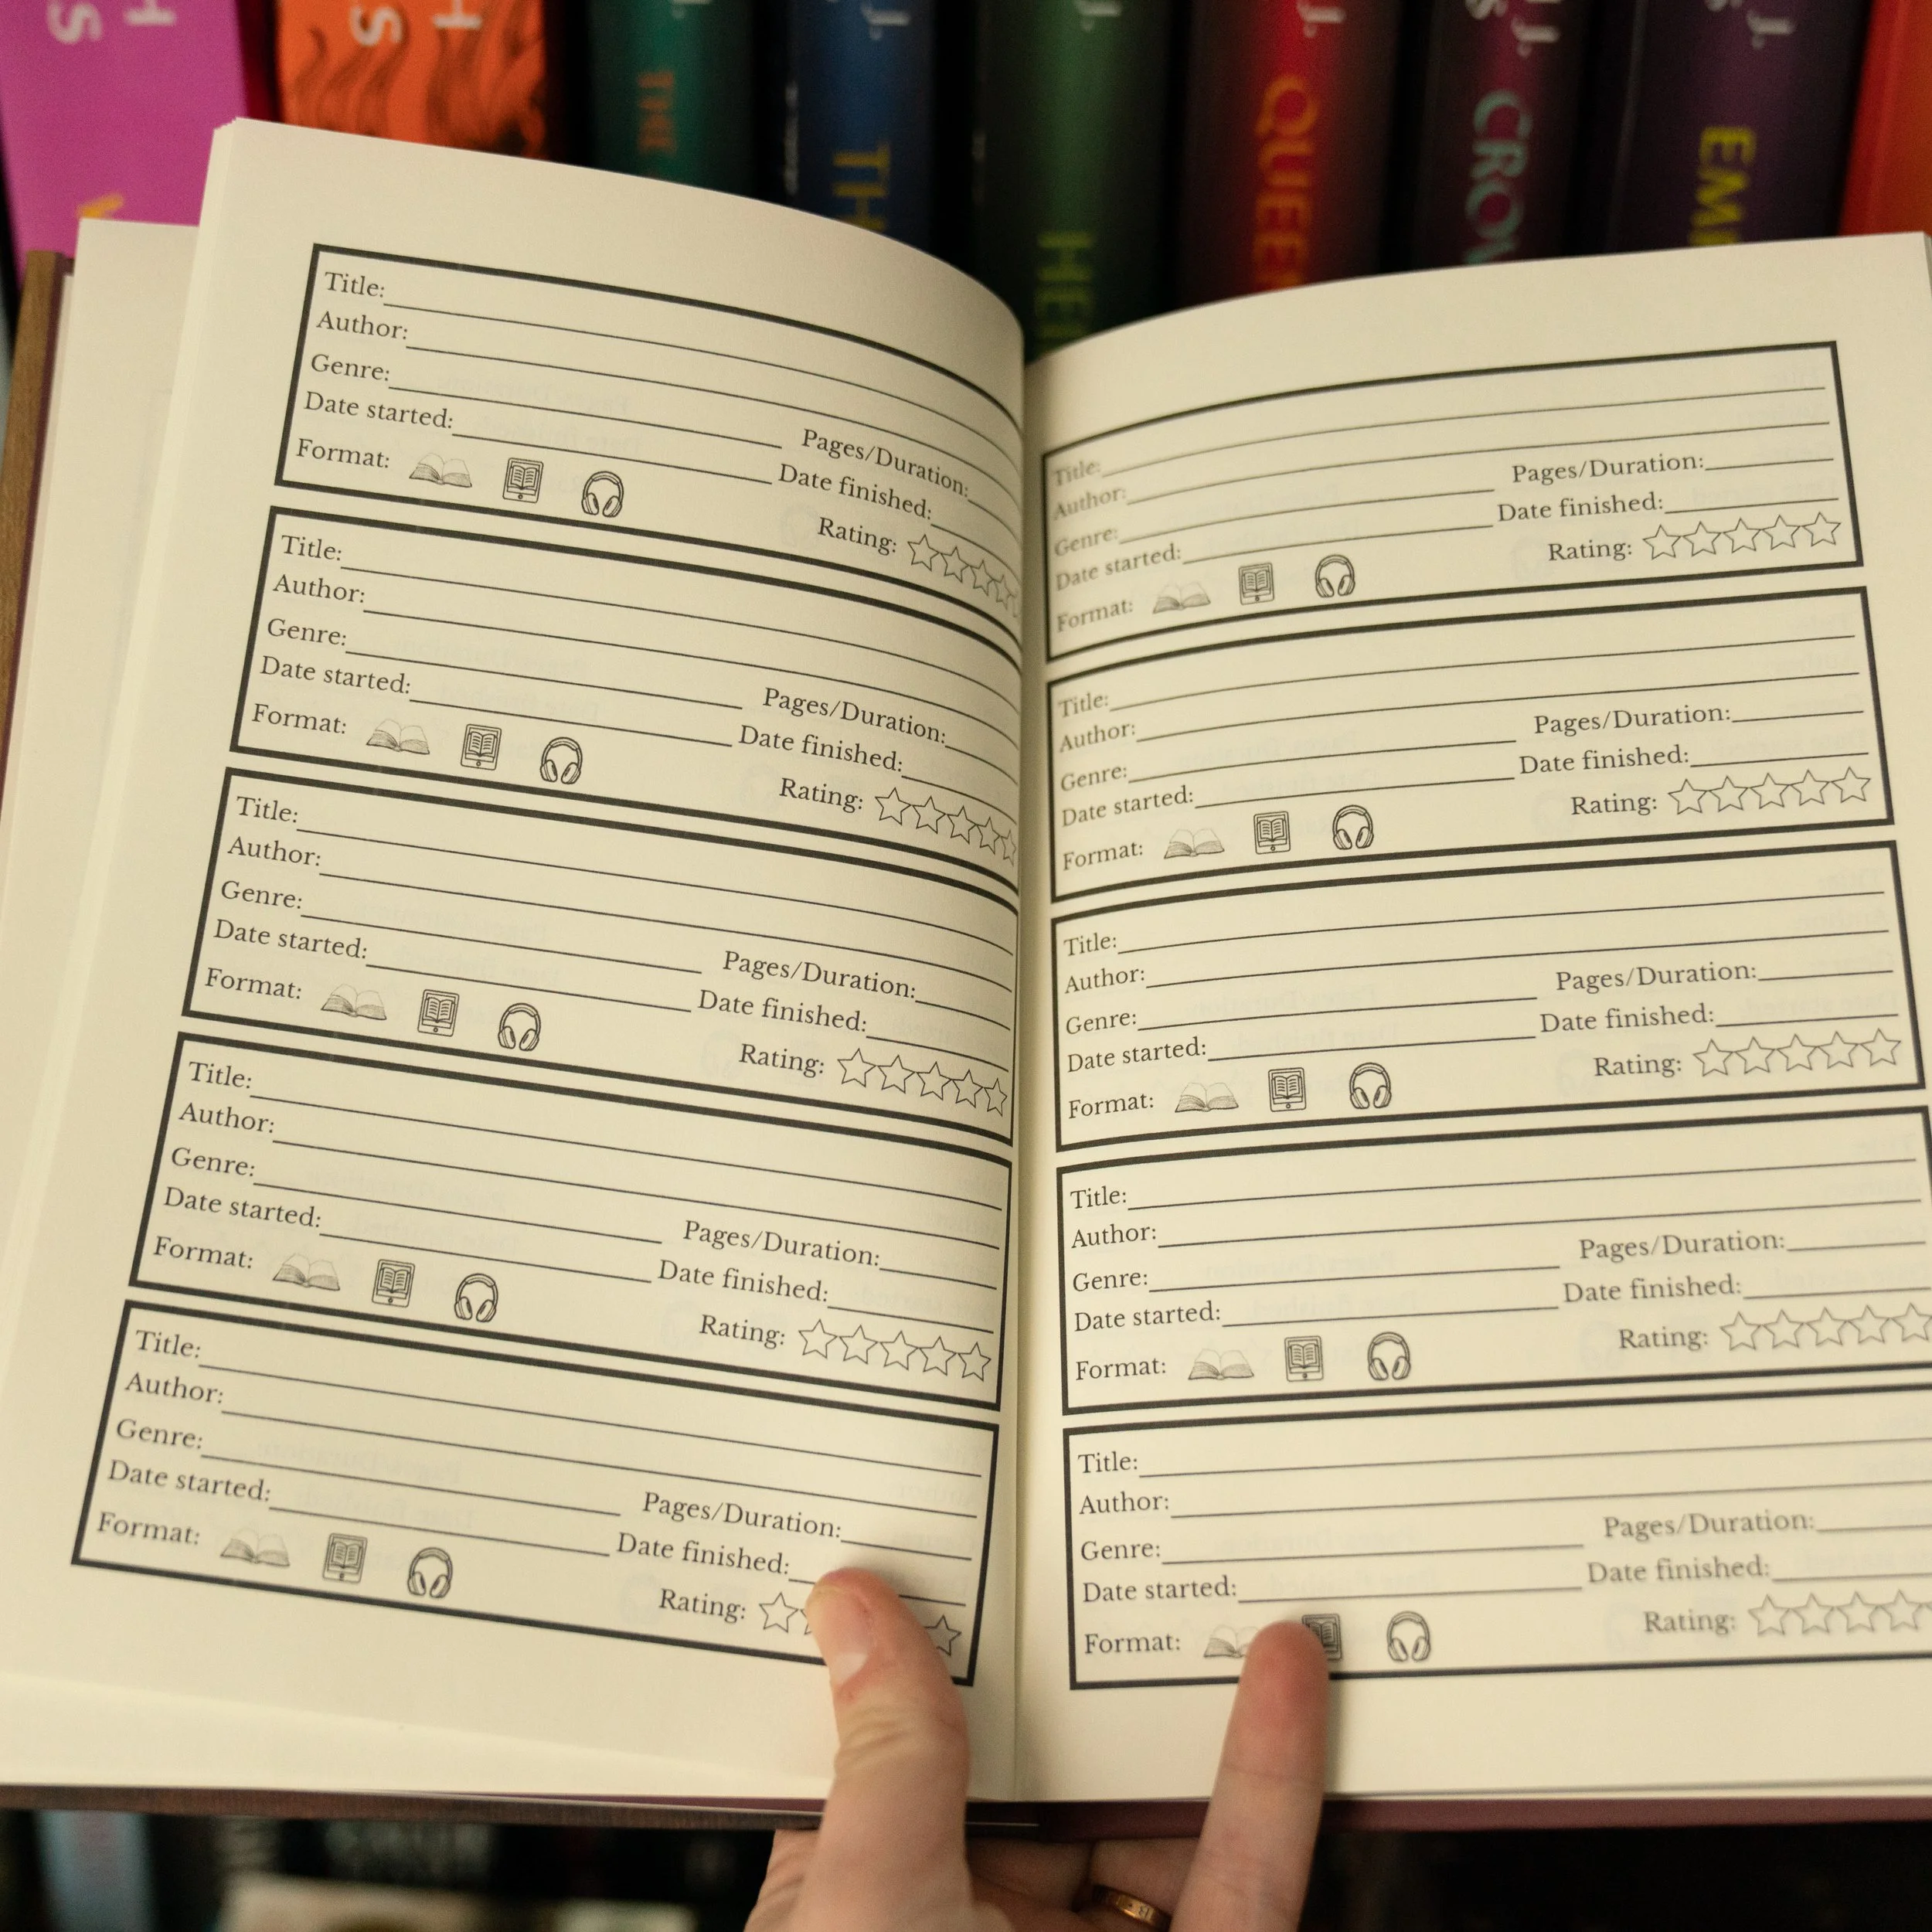 H
S
H
S
J.
THE
J.
TH
J.
HEI
J.
QUEEN
J.
S
CROW
J.
S
EMP
Title:
Author:
Genre:
Pages/Duration:
Date started:
Date finished:
Format:
Rating:
Title:
Author:
Genre:
Pages/Duration:
Date started:
Date finished:
Format:
Rating:
Title:
Author:
Genre:
Pages/Duration:
Date started:
Date finished:
Format:
Rating:
Title:
Author:
Genre:
Pages/Duration:
Date started:
Date finished:
Format:
Rating:
Title:
Author:
Genre:
Pages/Duration:
Date started:
Date finished:
Format:
Rating:
Title:
Author:
Genre:
Pages/Duration:
Date started:
Date finished:
Format:
Rating:
Title:
Author:
Genre:
Pages/Duration:
Date started:
Date finished:
Format:
Rating:
Title:
Author:
Genre:
Pages/Duration:
Date started:
Date finished:
Format:
Rating:
Title:
Author:
Genre:
Pages/Duration:
Date started:
Date finished:
Format:
Rating:
Title:
Author:
Genre:
Pages/Duration:
Date started:
Date finished:
Format:
Rating: